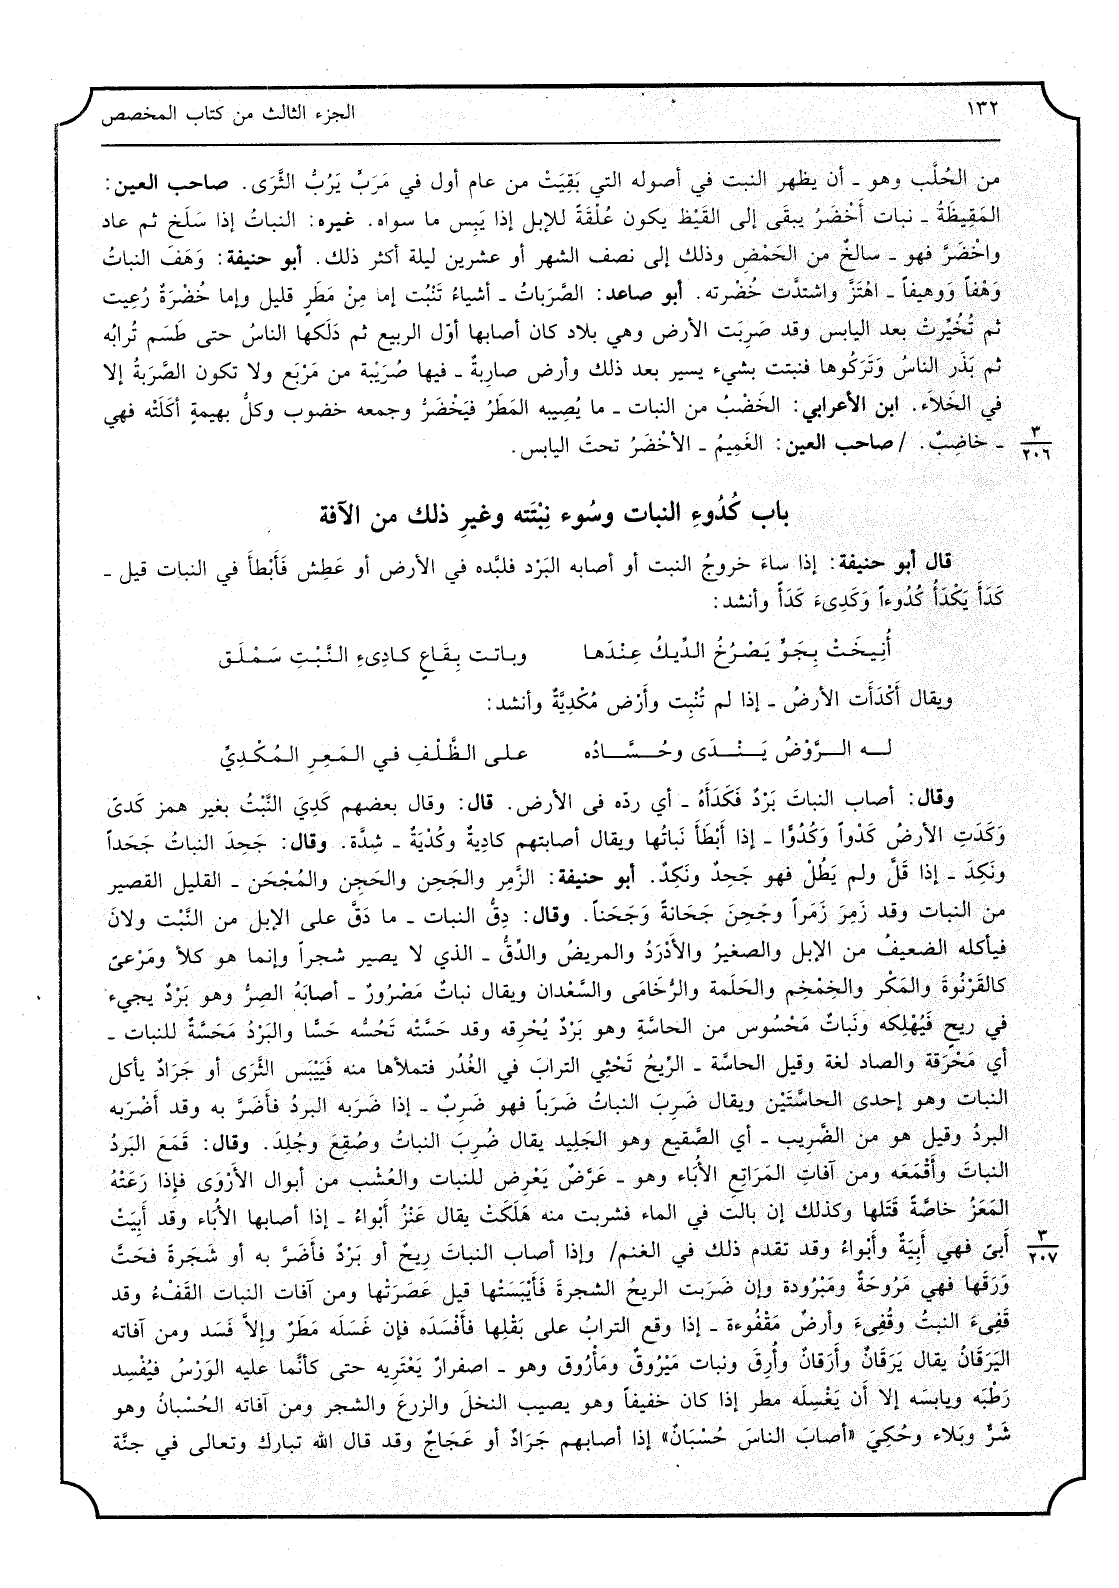 ١٣٢
الجزء الثالث من كتاب المخصص
من الحُلَّب وهو ـ أن يظهر النبت في أصوله التي بَقِيَتْ من عام أول في مَرَبٍّ يَرُبُّ الثَّرَى. صاحب العين:
المَقِيظَةُ ـ نبات أَخْضَرُ يبقَى إلى القَيْظ يكون عُلْقَةً للإبل إذا يَبِس ما سواه. غيره: النباتُ إذا سَلَخ ثم عاد
واخْضَرَّ فهو ـ سالخٌ من الحَمْض وذلك إلى نصف الشهر أو عشرين ليلة أكثر ذلك. أبو حنيفة: وَهَفَ النباتُ
وَهْفاً وَوهيفاً ـ اهْتَزَّ واشتدَّت خُضْرته. أبو صاعد: الصَّرَباتُ ـ أشياءُ تَنْبُت إما مِنْ مَطَرٍ قليل وإما خُضْرَةٌ رُعِيت
ثم تُخُيِّرتْ بعد اليابس وقد صَرِبَت الأرض وهي بلاد كان أصابها أوّل الربيع ثم دَلَكها الناسُ حتى طَسَم تُرابُه
ثم بَذَر الناسُ وَتَرَكُوها فنبتت بشيء يسير بعد ذلك وأرض صاربةٌ ـ فيها صُرَيْبة من مَرْبَع ولا تكون الصَّرَبةُ إلا
في الخَلاَء. ابن الأعرابي: الخَضْبُ من النبات ـ ما يُصِيبه المَطَرُ فيَخْضَرُّ وجمعه خضوب وكلُّ بهيمةٍ أكَلَتْه فهي
ـ خاضِبٌ. / صاحب العين: الغَمِيمُ ـ الأخْضَرُ تحتَ اليابس.
٣
٢٠٦
باب كُدُوءِ النبات وسُوء نِبْتَته وغيرِ ذلك من الآفة
قال أبو حنيفة: إذا ساءَ خروجُ النبت أو أصابه البَرْد فلبَّده في الأرض أو عَطِش فَأَبْطأَ في النبات قيل ـ
كَدَأَ يَكْدَأُ كُدُوءاً وَكَدِىءَ كَدَأً وأنشد:
أُنِيخَتْ بِجَوٍّ يَصْرُخُ الدِّيكُ عِنْدَها    وباتت بِقَاعٍ كادِىءِ النَّبْتِ سَمْلَق
ويقال أَكْدَأَت الأرضُ ـ إذا لم تُنْبِت وأَرْض مُكْدِيَّةٌ وأنشد:
له الرَّوْضُ يَنْدَى وحُسَّادُه    على الظَّلْفِ في المَعِرِ المُكْدِيِّ
وقال: أصاب النباتَ بَرْدٌ فَكَدَأَهُ ـ أي ردّه فى الأرض. قال: وقال بعضهم كَدِيَ النَّبْتُ بغير همز كَدىً
وَكَدَتِ الأرضُ كَدْواً وَكُدُوًّا ـ إذا أَبْطَأَ نَباتُها ويقال أصابتهم كادِيةٌ وكُدْيَةٌ ـ شِدَّة. وقال: جَحِدَ النباتُ جَحَداً
ونَكِدَ ـ إذا قَلَّ ولم يَطُلْ فهو جَحِدٌ ونَكِدٌ. أبو حنيفة: الزَّمِر والجَحِن والحَجِن والمُجْحَن ـ القليل القصير
من النبات وقد زَمِرَ زَمَراً وجَحِنَ جَحَانةً وَجَحَناً. وقال: دِقُّ النبات ـ ما دَقَّ على الإبل من النَّبْت ولانَ
فيأكله الضعيفُ من الإبل والصغيرُ والأَدْرَدُ والمريضُ والدِّقُّ ـ الذي لا يصير شجراً وإنما هو كلأ ومَرْعىً
كالقَرْنُوةَ والمَكْر والخِمْخِم والحَلَمة والرُّخَامَى والسَّعْدان ويقال نباتٌ مَصْرُورٌ ـ أصابَهُ الصِرُّ وهو بَرْدٌ يجيء
في ريحٍ فَيُهْلِكه ونَباتٌ مَحْسُوس من الحاسَّةِ وهو بَرْدٌ يُحْرِقه وقد حَسَّتْه تَحُسُّه حَسًّا والبَرْدُ مَحَسَّةٌ للنبات ـ
أي مَحْرَقة والصاد لغة وقيل الحاسَّة ـ الرِّيحُ تَحْثِي الترابَ في الغُدُر فتملأها منه فَيَيْبَس الثَّرَى أو جَرَادٌ يأكل
النبات وهو إحدى الحاسَّتَيْن ويقال ضَرِبَ النباتُ ضَرَباً فهو ضَرِبٌ ـ إذا ضَرَبه البردُ فأضَرَّ به وقد أضْرَبه
البردُ وقيل هو من الضَّرِيب ـ أي الصَّقيع وهو الجَلِيد يقال ضُرِبَ النباتُ وصُقِعَ وجُلِدَ. وقال: قَمَعَ البَرْدُ
النباتَ وأَقْمَعَه ومن آفاتِ المَرَاتِع الأُبَاء وهو ـ عَرَّضٌ يَعْرِض للنبات والعُشْب من أبوال الأَرْوَى فإذا رَعَتْهُ
المَعَزُ خاصَّةً قَتَلها وكذلك إن بالت في الماء فشربت منه هَلَكَتْ يقال عَنْزٌ أبْواءُ ـ إذا أصابها الأُبَاء وقد أَبِيَتْ
أَبىً فهي أَبِيَةٌ وأَبْواءُ وقد تقدم ذلك في الغنم/ وإذا أصاب النباتَ رِيحٌ أو بَرْدٌ فأضَرَّ به أو شَجَرةً فحَتَّ
٣
٢٠٧
وَرَقَها فهي مَرُوحَةٌ ومَبْرُودة وإن ضَرَبت الريحُ الشجرةَ فَأَيْبَسَتْها قيل عَصَرَتْها ومن آفات النبات القَفْءُ وقد
قَفِىءَ النبتُ وقُفِىءَ وأرضٌ مَقْفُوءة ـ إذا وقع الترابُ على بَقْلِها فأفْسَدَه فإن غَسَلَه مَطَرٌ وإلاَّ فَسَد ومن آفاته
اليَرَقَانُ يقال يَرَقَانٌ وأَرَقانٌ وأُرِقَ ونبات مَيْرُوقٌ ومَأْرُوق وهو ـ اصفرارٌ يَعْتَرِيه حتى كأنَّما عليه الوَرْسُ فيُفْسِد
رَطْبَه ويابسَه إلا أَن يَغْسِلَه مطر إذا كان خفيفاً وهو يصيب النخلَ والزرعَ والشجر ومن آفاته الحُسْبانُ وهو
شَرٌّ وبَلاء وحُكِيَ «أصابَ الناسَ حُسْبَانٌ» إذا أصابهم جَرَادٌ أو عَجَاجٌ وقد قال الله تبارك وتعالى في جنَّة